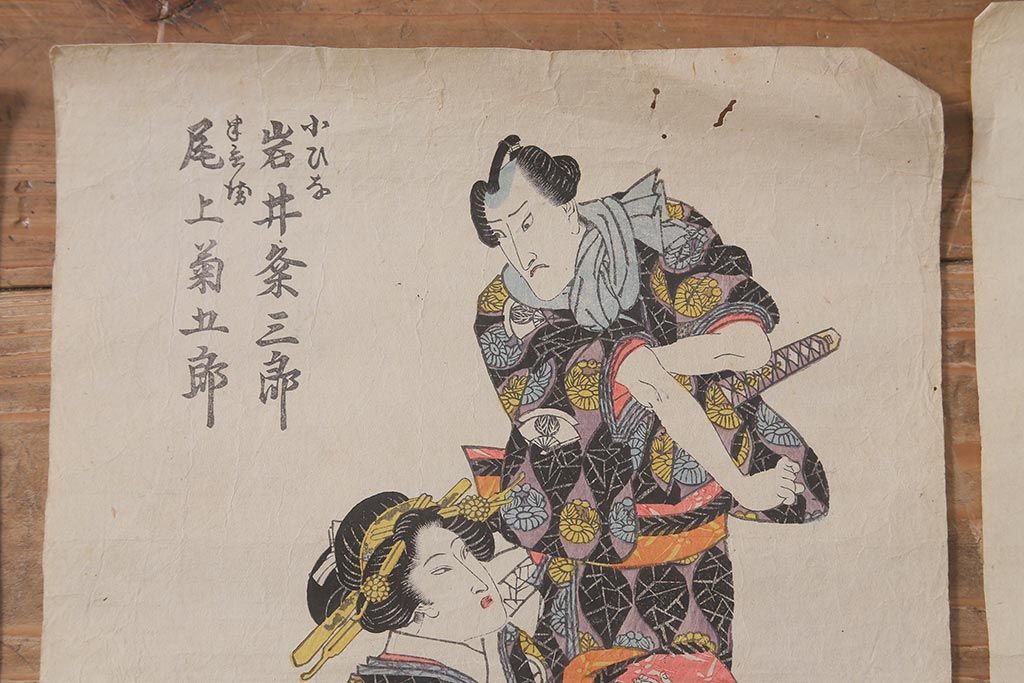 小ひな
岩井粂三郎
半兵衛
尾上菊五郎